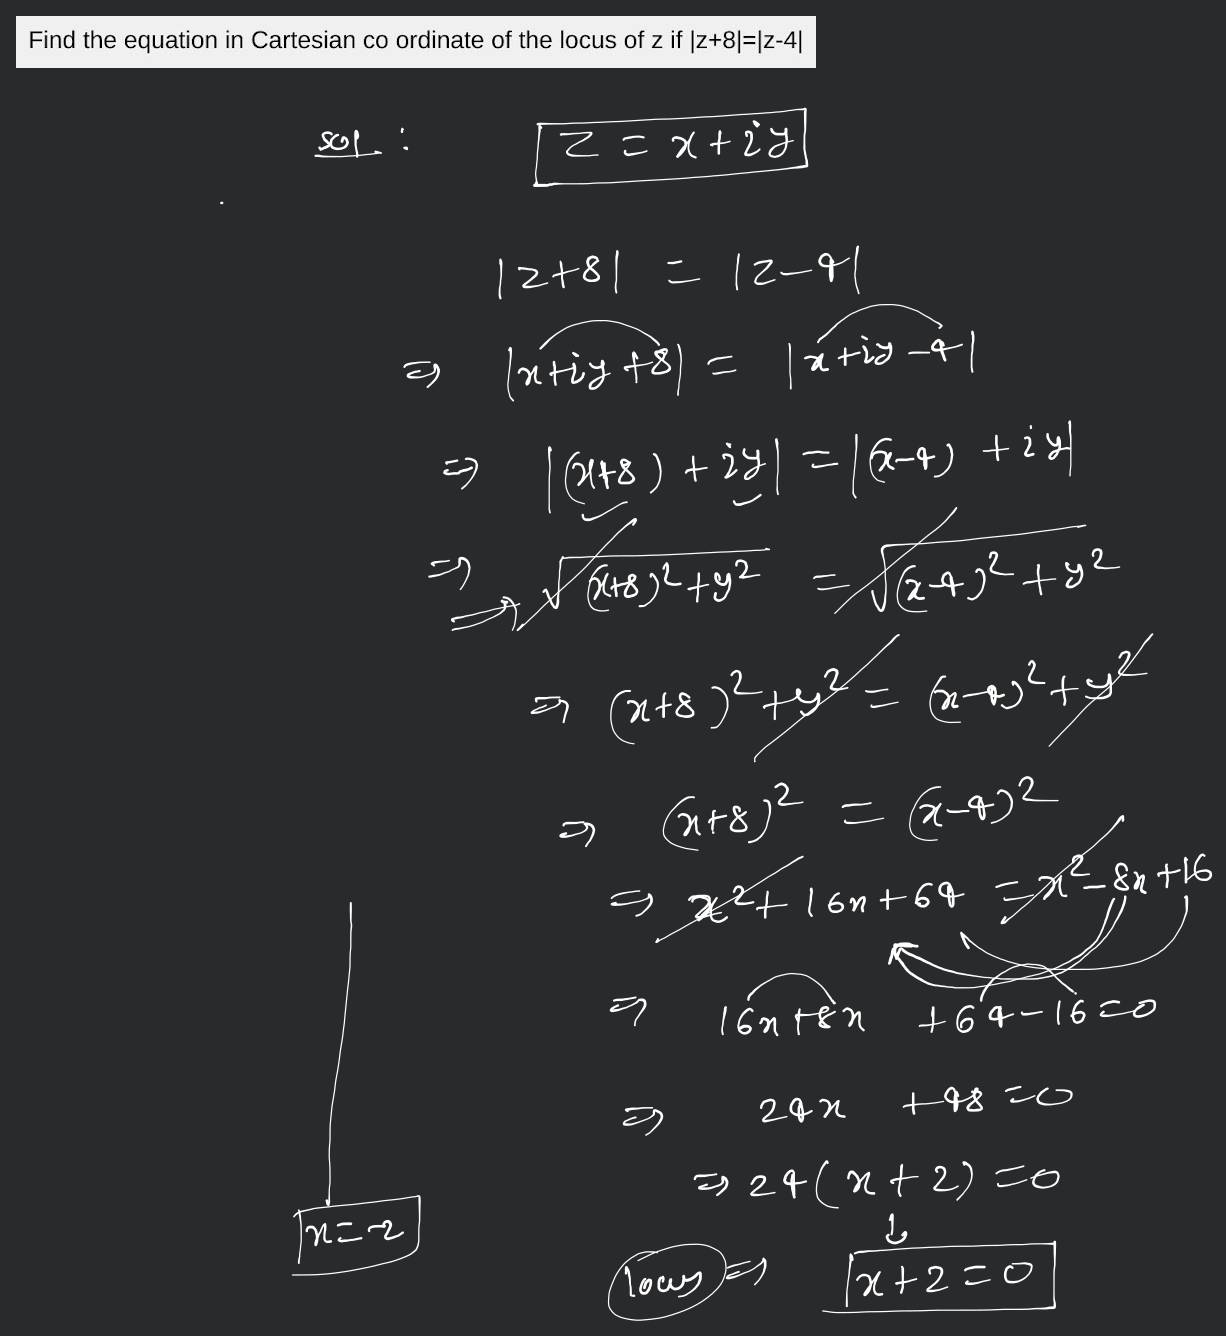 Find the equation in Cartesian co ordinate of the locus of z if |z+8|=|z-4|
sol : z = x+iy
|z+8| = |z-4|
⇒ |x+iy+8| = |x+iy-4|
⇒ |(x+8)+iy| = |(x-4)+iy|
⇒ √(x+8)²+y² = √(x-4)²+y²
⇒ (x+8)²+y² = (x-4)²+y²
⇒ (x+8)² = (x-4)²
⇒ x²+16x+64 = x²-8x+16
⇒ 16x+8x +64-16=0
⇒ 24x +48=0
⇒ 24(x+2)=0
x=-2
locus ⇒ x+2=0